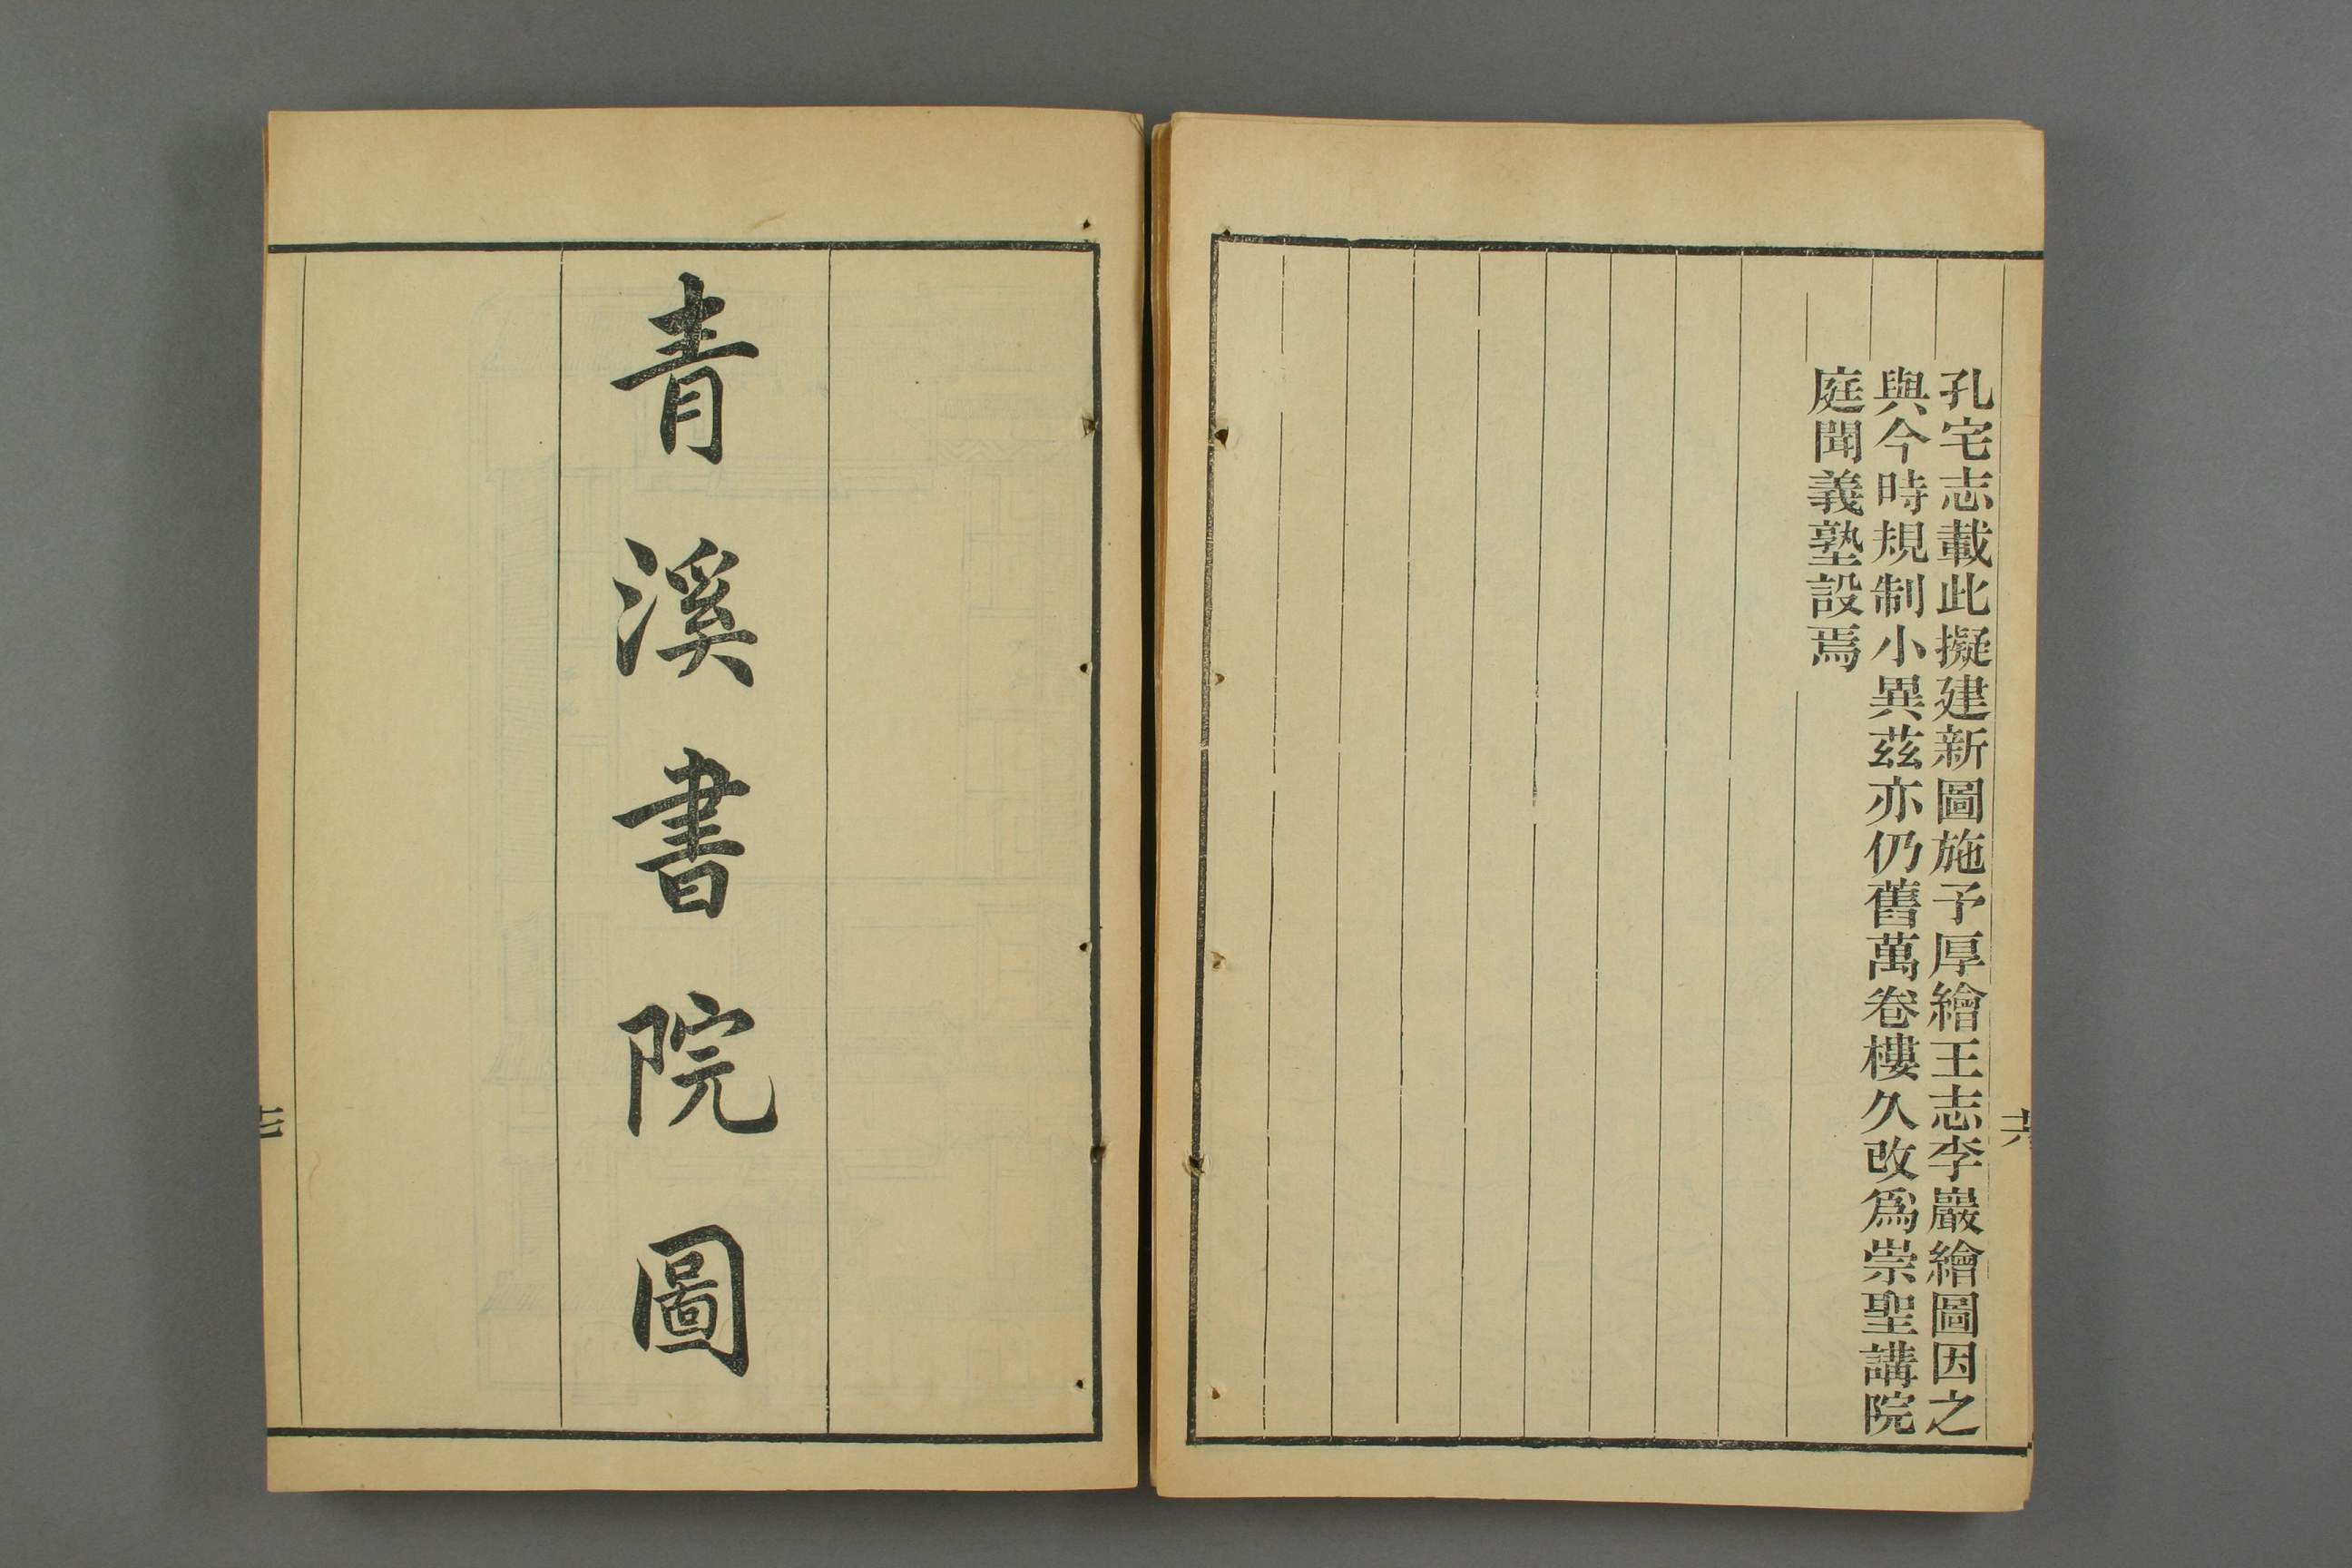 孔宅志載此擬建新圖施予厚繪王志李巖繪圖因之
與今時規制小異茲亦仍舊萬卷樓久改爲崇聖講院
庭聞義塾設焉
十六
青溪書院圖
十七